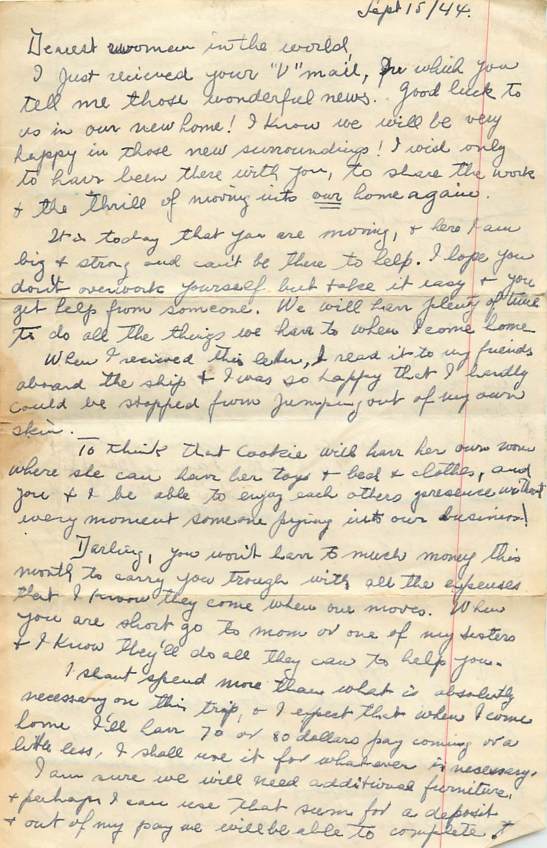 Sept 15/44.
Dearest woman in the world,
I Just recieved your "V" mail, in which you
tell me those wonderful news. Good luck to
us in our new home! I Know we will be very
happy in those new surroundings! I wish only
to have been there with you, to share the work
& the thrill of moving into our home again.
It is today that you are moving, & here I am
big & strong and can't be there to help. I hope you
don't overwork yourself but take it easy & you
get help from someone. We will have plenty of time
to do all the things we have to when I come home
When I recieved this letter, I read it to my friends
aboard the ship & I was so happy that I hardly
could be stopped from Jumping out of my own
skin.
To think that Cookie will have her own room
where she can have her toys & bed & clothes, and
you & I be able to enjoy each others presence without
every moment someone prying into our business!
Darling, you won't have to much money this
month to carry you trough with all the expenses
that I know they come when one moves. When
you are short go to mom or one of my sisters
& I Know they'll do all they can to help you.
I shant spend more than what is absolutly
necessary on this trip, & I expect that when I come
home I'll have 70 or 80 dollars pay coming or a
little less, I shall use it for whatever is necessary.
I am sure we will need additional furniture,
& perhaps I can use that sum for a deposit
& out of my pay we will be able to complete it